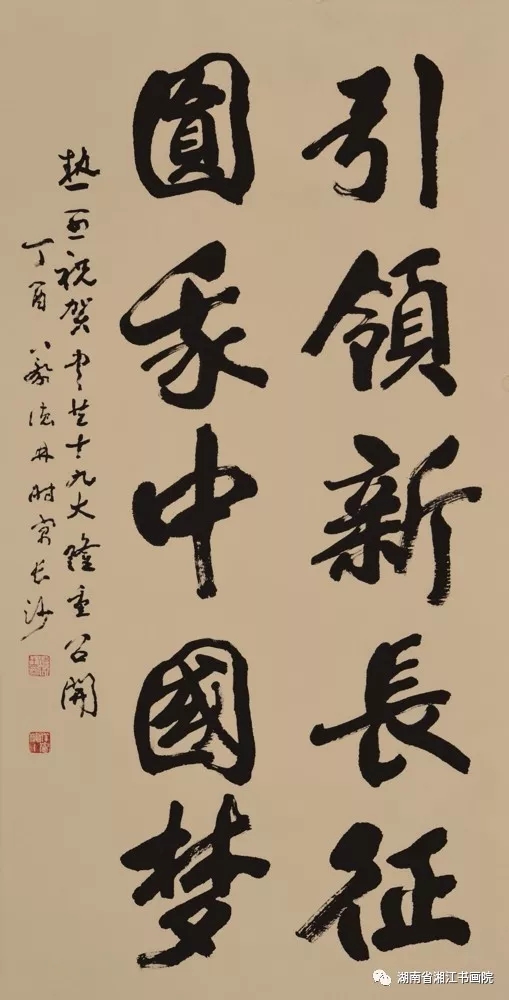 引領新長征
圓我中国梦
热烈祝贺中共十九大隆重召開
丁酉 德林时寓长沙
湖南省湘江书画院